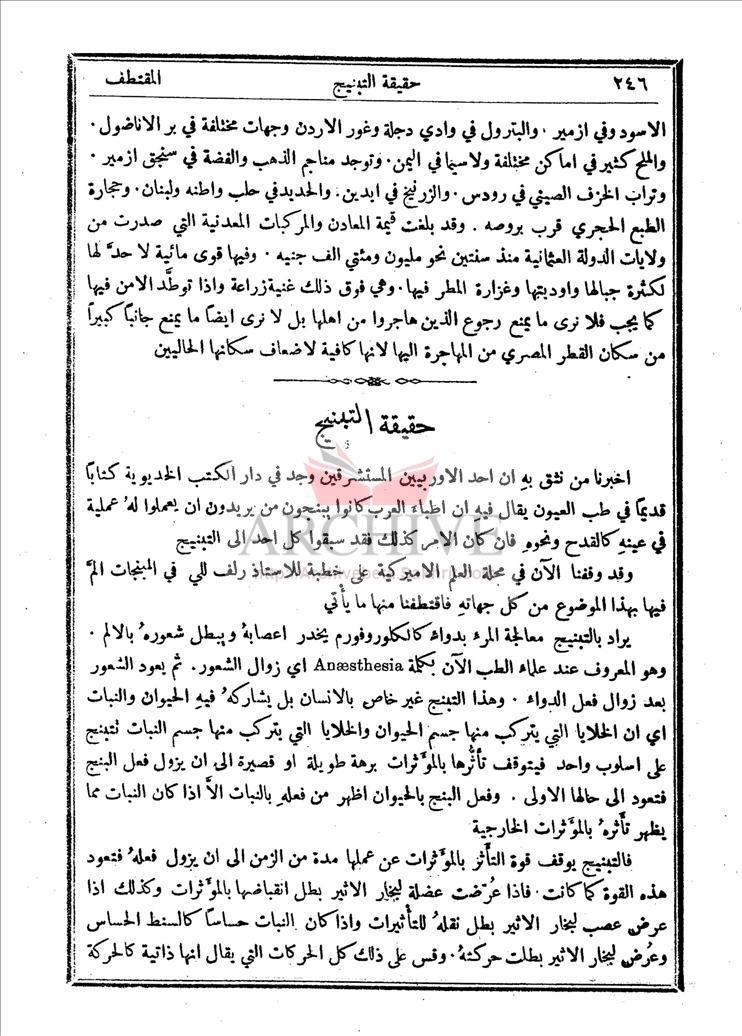 ٢٤٦ حقيقة التبنيج المقتطف
الاسود وفي ازمير . والبترول في وادي دجلة وغور الاردن وجهات مختلفة في بر الاناضول .
والملح كثير في اماكن مختلفة ولاسيما في اليمن . وتوجد مناجم الذهب والفضة في سنجق ازمير .
وتراب الخزف الصيني في رودس . والزرنيخ في ايدين . والحديد في حلب واطنه ولبنان . وحجارة
الطبع الحجري قرب بروصه . وقد بلغت قيمة المعادن والمركبات المعدنية التي صدرت من
ولايات الدولة العثمانية منذ سنتين نحو مليون ومئتي الف جنيه . وفيها قوى مائية لا حدَّ لها
لكثرة جبالها واوديتها وغزارة المطر فيها . وهي فوق ذلك غنية زراعة واذا توطَّد الامن فيها
كما يجب فلا نرى ما يمنع رجوع الذين هاجروا من اهلها بل لا نرى ايضاً ما يمنع جانباً كبيراً
من سكان القطر المصري من المهاجرة اليها لانها كافية لاضعاف سكانها الحاليين
حقيقة التبنيج
اخبرنا من نثق بهِ ان احد الاوربيين المستشرقين وجد في دار الكتب الخديوية كتاباً
قديماً في طب العيون يقال فيه ان اطباء العرب كانوا يبنجون من يريدون ان يعملوا لهُ عملية
في عينهِ كالقدح ونحوهِ فان كان الامر كذلك فقد سبقوا كل احد الى التبنيج
وقد وقفنا الآن في مجلة العلم الاميركية على خطبة للاستاذ رلف للي في المبنجات المَّ
فيها بهذا الموضوع من كل جهاتهِ فاقتطفنا منها ما يأتي
يراد بالتبنيج معالجة المرء بدواء كالكلوروفورم يخدر اعصابهُ ويبطل شعورهُ بالالم .
وهو المعروف عند علماء الطب الآن بكلمة Anæsthesia اي زوال الشعور . ثم يعود الشعور
بعد زوال فعل الدواء . وهذا التبنج غير خاص بالانسان بل يشاركهُ فيهِ الحيوان والنبات
اي ان الخلايا التي يتركب منها جسم الحيوان والخلايا التي يتركب منها جسم النبات تتبنج
على اسلوب واحد فيتوقف تأثُّرها بالمؤثرات برهة طويلة او قصيرة الى ان يزول فعل البنج
فتعود الى حالها الاولى . وفعل البنج بالحيوان اظهر من فعلهِ بالنبات الاَّ اذا كان النبات مما
يظهر تأثرهُ بالمؤثرات الخارجية
فالتبنيج يوقف قوة التأثر بالمؤثرات عن عملها مدة من الزمن الى ان يزول فعلهُ فتعود
هذه القوة كما كانت . فاذا عُرّضت عضلة لبخار الاثير بطل انقباضها بالمؤثرات وكذلك اذا
عرض عصب لبخار الاثير بطل نقلهُ للتأثيرات واذا كان النبات حساساً كالسنط الحساس
وعُرِض لبخار الاثير بطلت حركتهُ . وقس على ذلك كل الحركات التي يقال انها ذاتية كالحركة
ARCHIVE